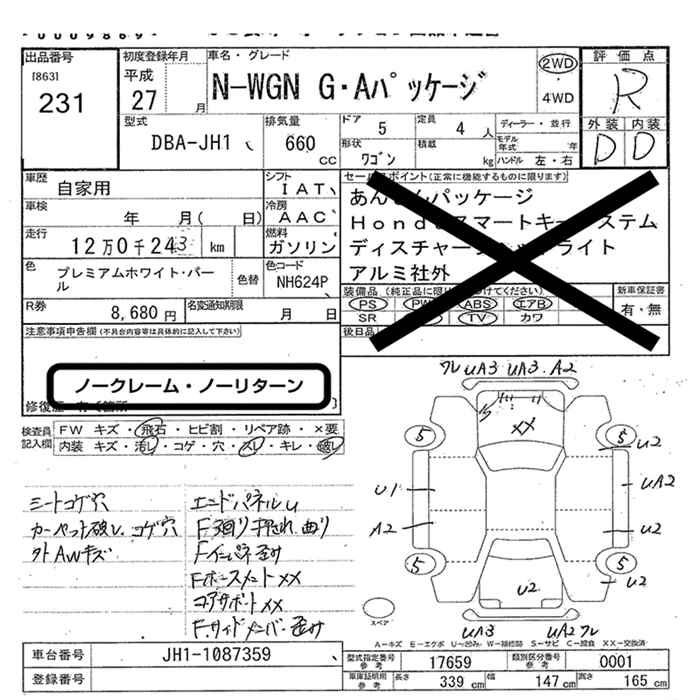 出品番号
[863]
231
初度登録年月
平成
27 月
車名・グレード
N-WGN G・Aパッケージ
2WD
4WD
評価点
R
外装 内装
D D
型式
DBA-JH1
排気量
660
cc
ドア 5
定員 4 人
形状 ワゴン
積載 kg
ディーラー・並行
モデル年式 年
ハンドル 左・右
車歴
自家用
シフト
IAT
車検
年 月( 日)
冷房
AAC
走行
12万0千243 km
燃料
ガソリン
色
プレミアムホワイト・パール
色替
色コード
NH624P
R券
8,680 円
名変通知期限
月 日
セールスポイント(正常に機能するものに限ります)
あんしんパッケージ
Hondaスマートキーシステム
ディスチャージヘッドライト
アルミ社外
装備品
PS PW ABS エアB
SR TV カワ
新車保証書
有・無
後日品
注意事項申告欄(不具合内容等は具体的に記入して下さい)
ノークレーム・ノーリターン
検査員記入欄
FW キズ・飛石・ヒビ割・リペア跡・×要
内装 キズ・汚レ・コゲ・穴・スレ・キレ・
シートコゲ穴
カーペット破レ、コゲ穴
外AWキズ
エンドパネルU
F廻り押され、曲り
Fインパネ歪み
FホースメントXX
コアサポートXX
F.サイドメンバー歪み
ワレ UA3 UA3. A2
XX
5 5
U2
U1
UA2
A2
U2
5 5
U2
U2
UA3 UA2 ワレ
スペア
A-キズ E-エクボ U-凹み W-補修跡 S-サビ C-腐食 XX-交換済
車台番号 JH1-1087359
登録番号
型式指定番号 参考 17659
類別区分番号 参考 0001
車庫証明用 参考 長さ 339 cm 幅 147 cm 高さ 165 cm